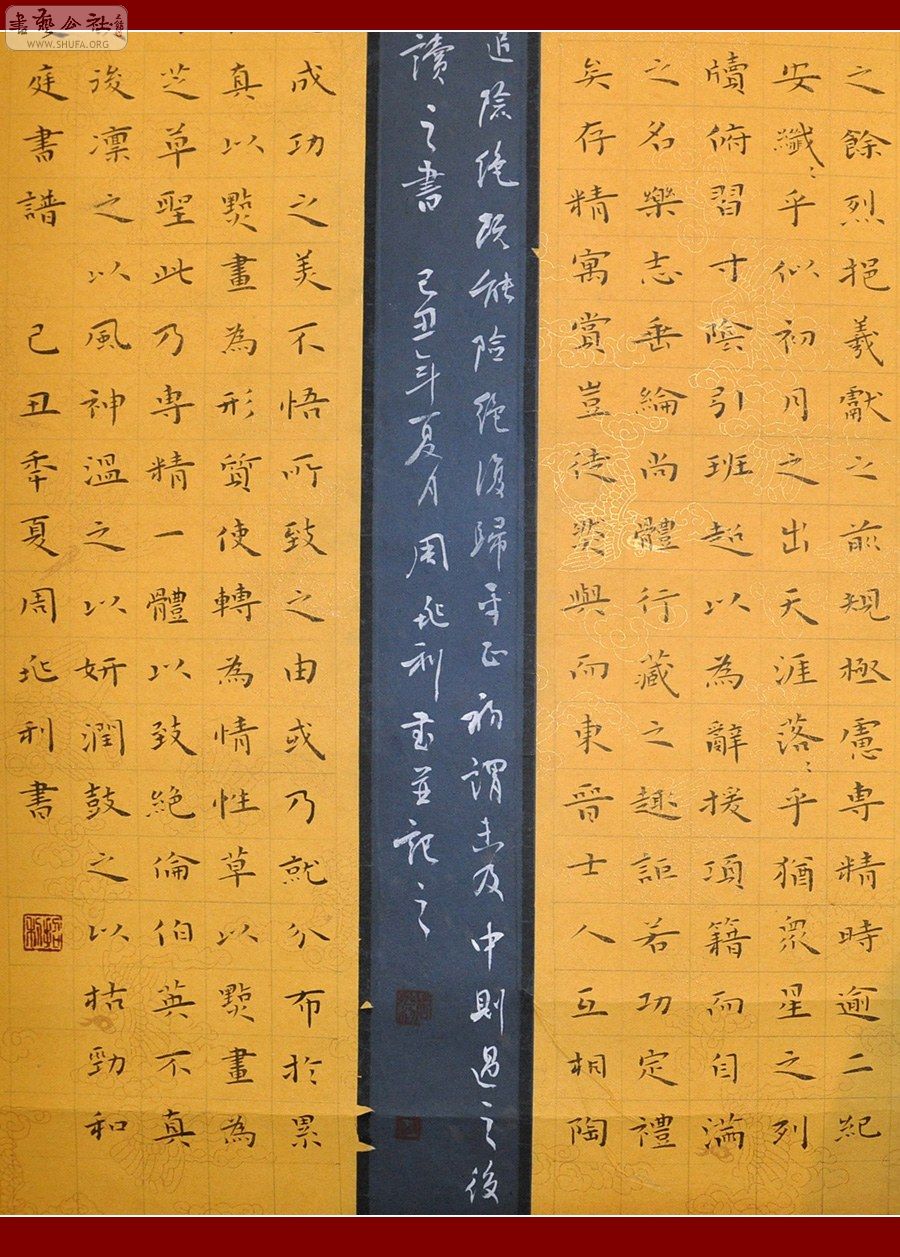 書藝公社
WWW.SHUFA.ORG
之餘烈挹羲獻之前規極慮專精時逾二紀
安纖〻乎似初月之出天涯落〻乎猶眾星之列
牘俯習寸陰引班超以為辭援項籍而自滿
之名樂志垂綸尚體行藏之趣詎若功定禮
矣存精寓賞豈徒然與而東晉士人互相陶
追險絕既能險絕復歸平正初謂未及中則過之後
讀之書 己丑年夏月周兆利書並記之
成功之美不悟所致之由或乃就分布於累
真以點畫為形質使轉為情性草以點畫為
芝草聖此乃專精一體以致絕倫伯英不真
後凜之以風神溫之以妍潤鼓之以枯勁和
庭書譜 己丑年夏周兆利書